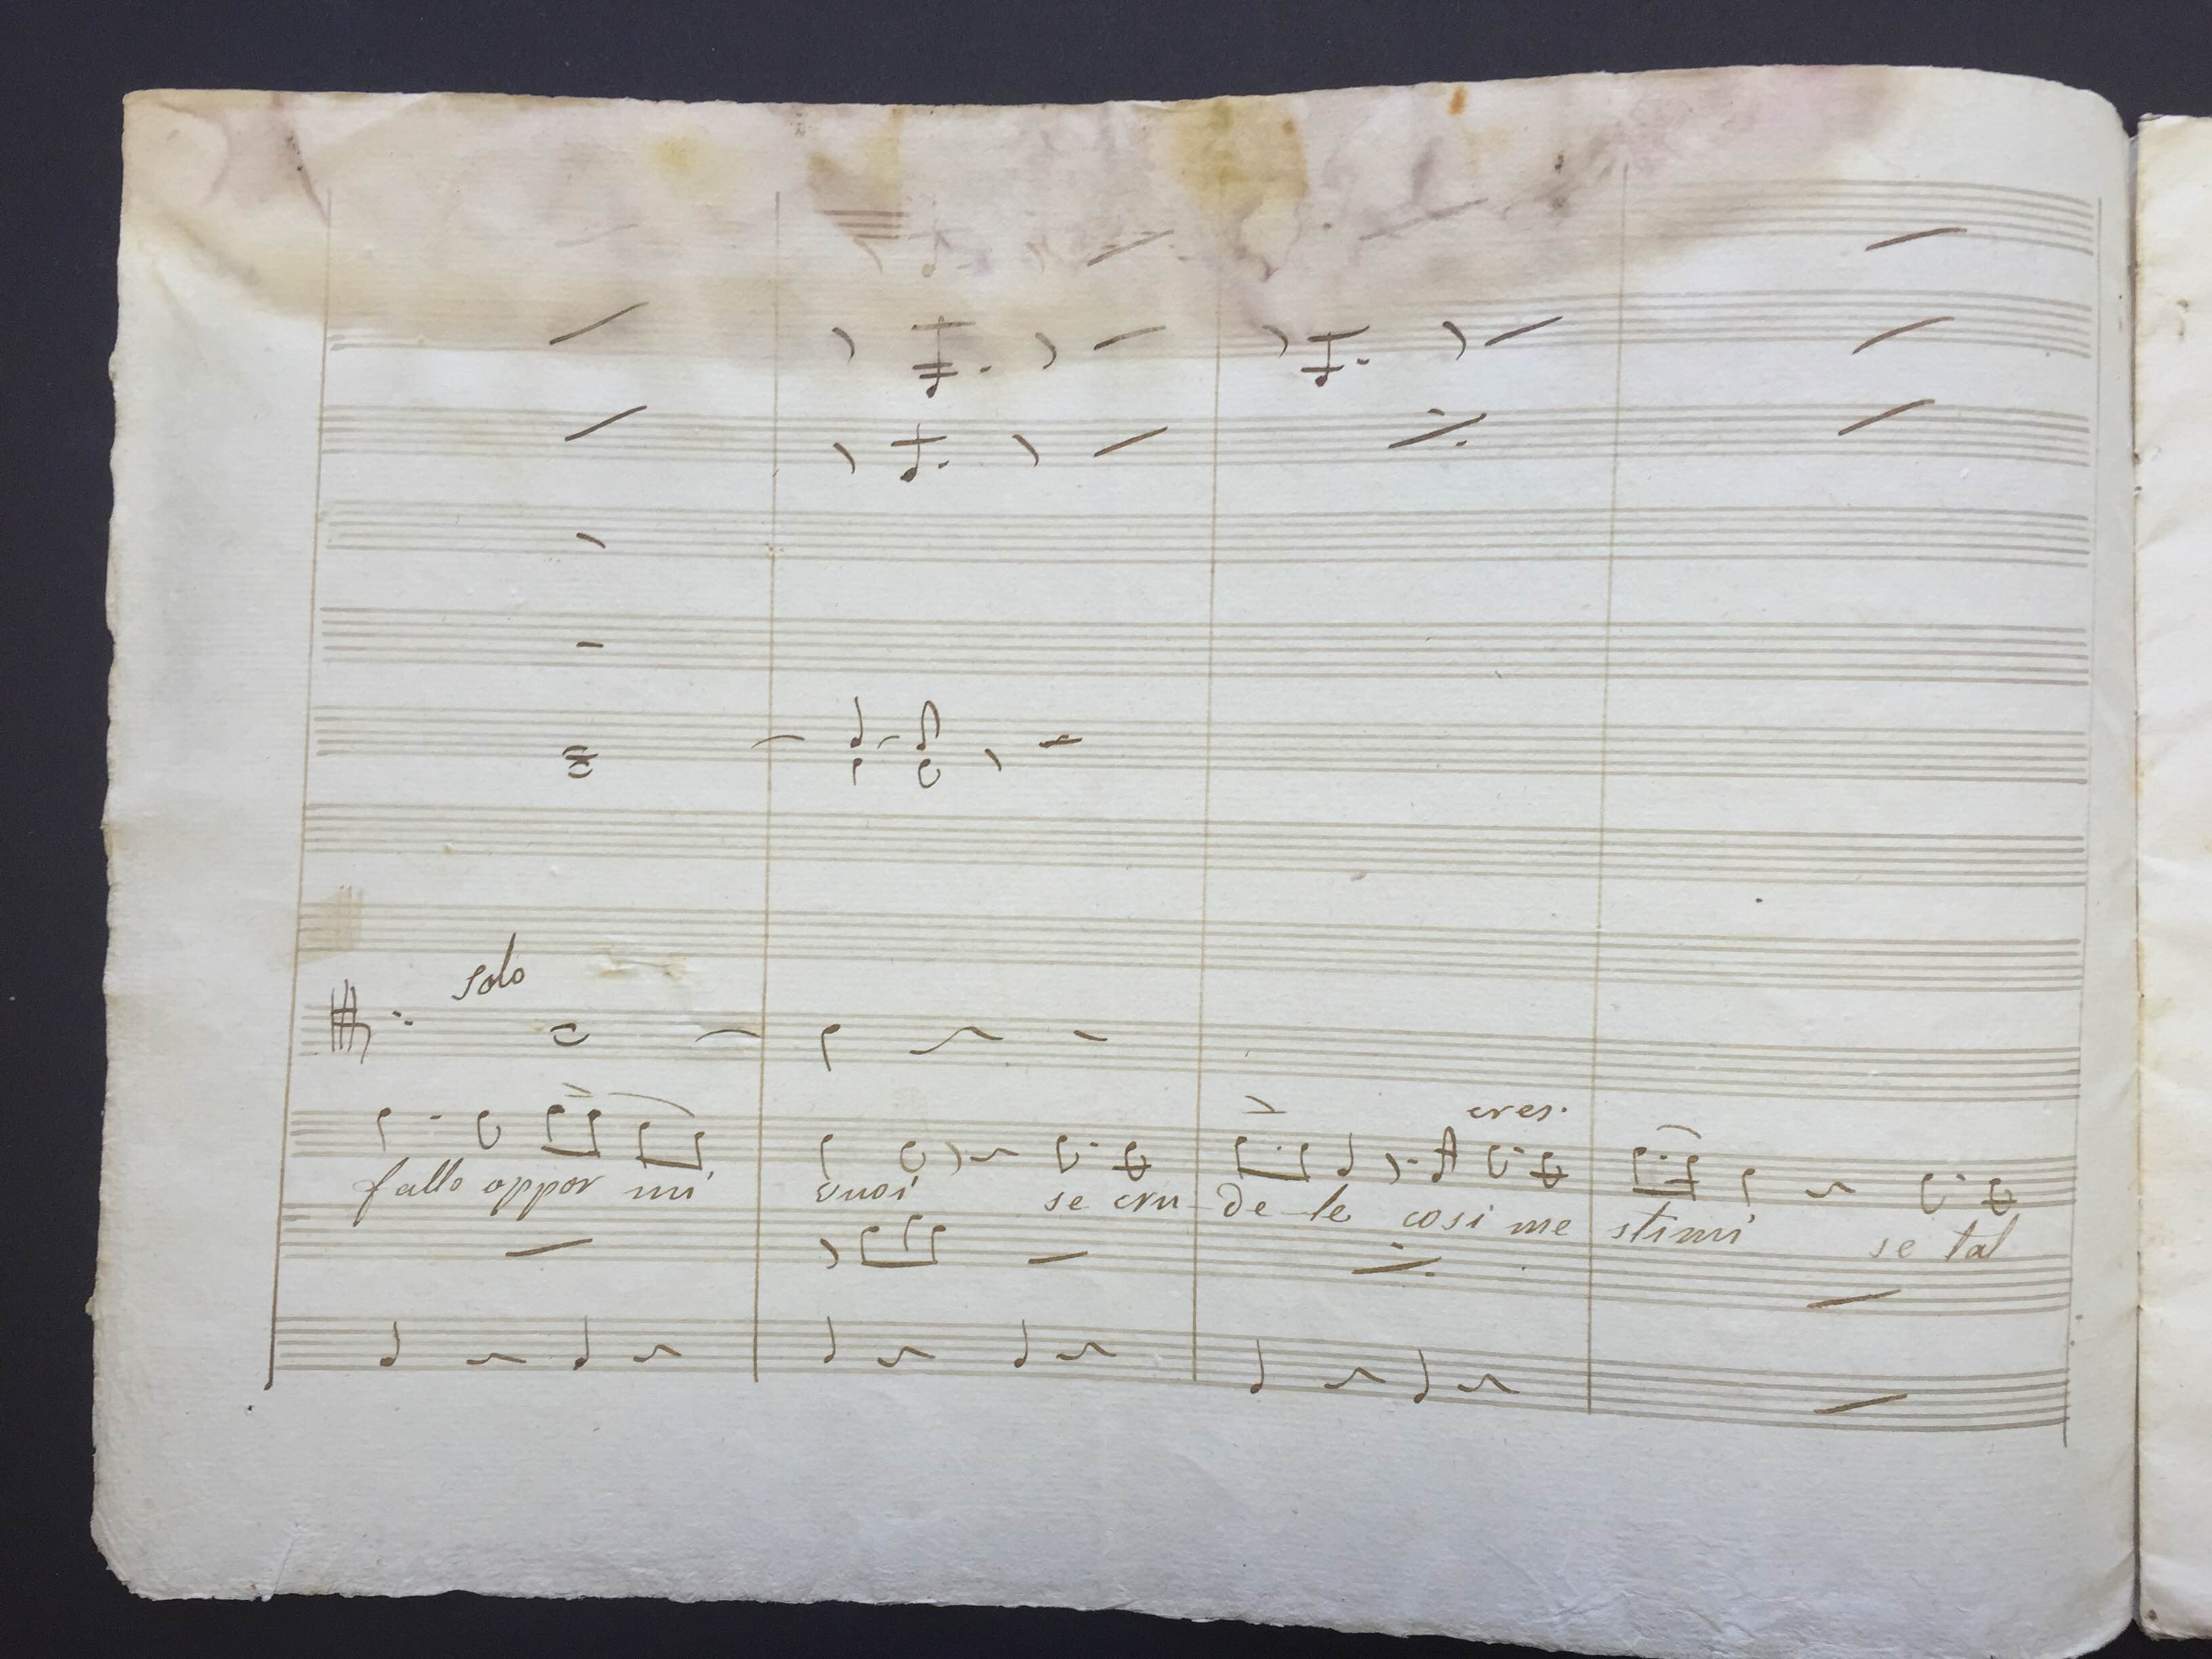 solo
cres.
fallo oppor mi vuoi se cru de le cosi me stimi se tal